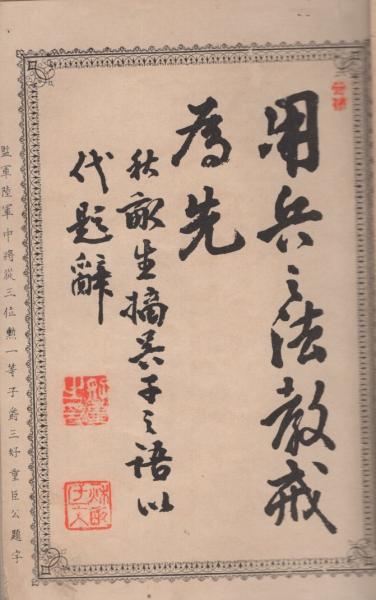 用兵之法教戒
為先
秋畝生摘吳子之語以
代題辭
監軍陸軍中將從三位勲一等子爵三好重臣公題字